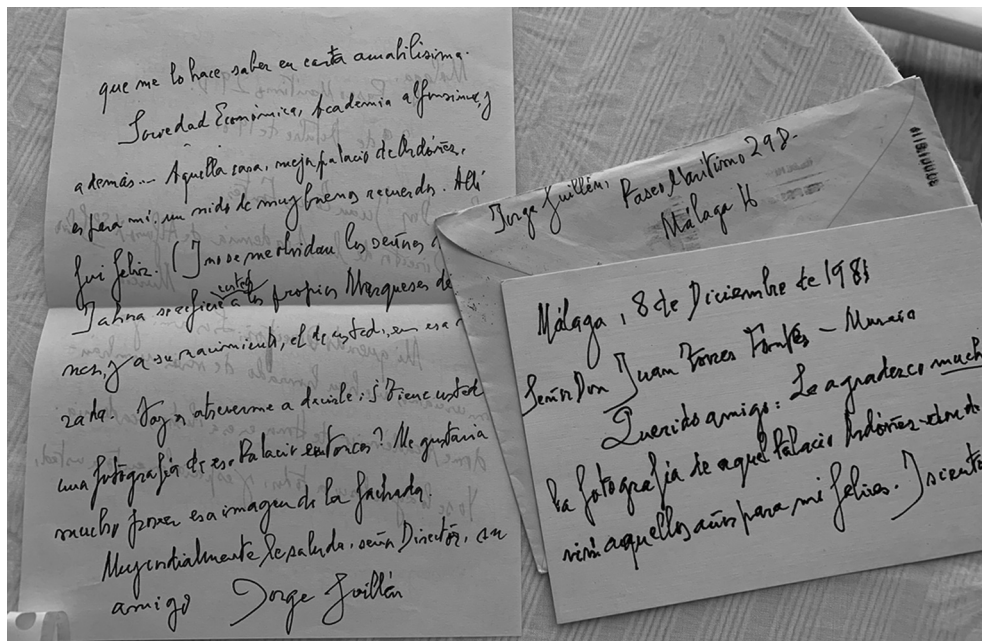 que me lo hace saber en carta amabilísima.
Sociedad Económica, Academia alfonsina, y
además... Aquella casa, mejor palacio de Ordóñez,
es para mí un nido de muy buenos recuerdos. Allí
fui feliz. (Y no se me olvidan los señores
Y ahora se refiere usted a los propios Marqueses de
y a su nacimiento, el de usted, en esa
Voy a atreverme a decirle: ¿Tiene usted
una fotografía de ese Palacio entonces? Me gustaría
mucho poseer esa imagen de la fachada.
Muy cordialmente le saluda, señor Director, su
amigo Jorge Guillén
Jorge Guillén,
Paseo Marítimo 29 8.
Málaga 16
Málaga, 8 de Diciembre de 1981
Señor Don Juan Torres Fontes - Murcia
Querido amigo: Le agradezco much
la fotografía de aquel Palacio Ordóñez donde
viví aquellos años para mí felices. Y siento